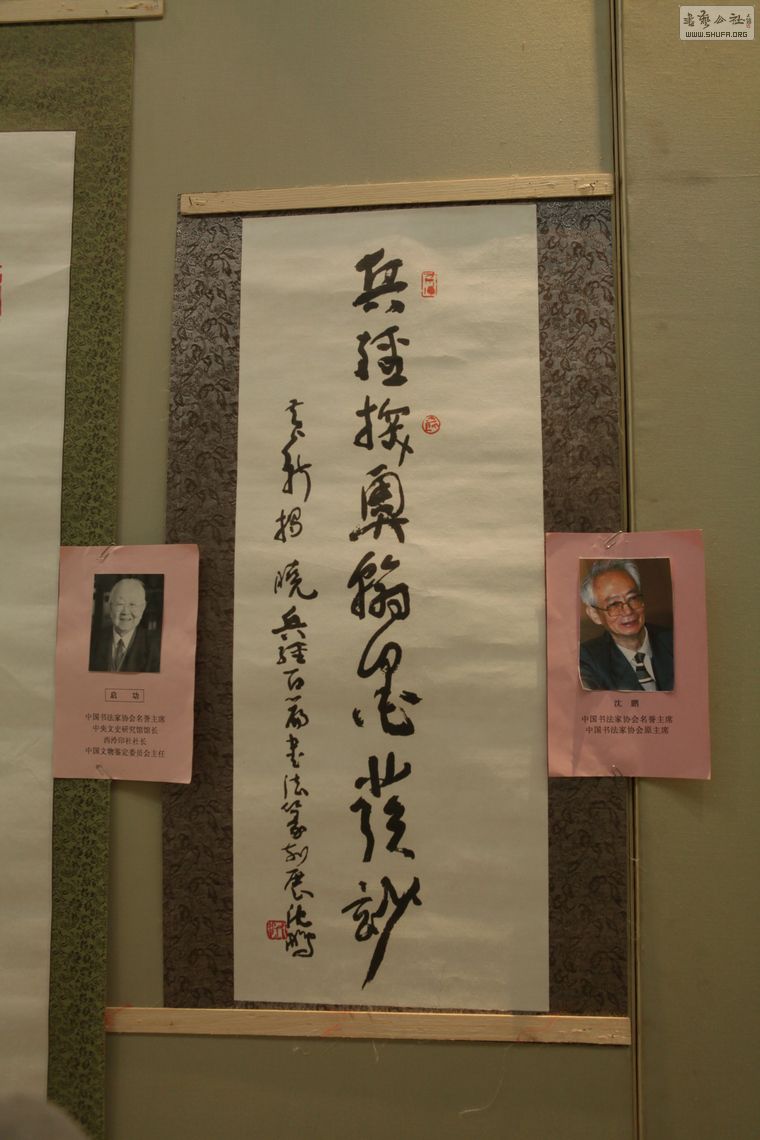 书艺公社
WWW.SHUFA.ORG
兵经探奥翰墨发妙
黄新揭晓兵經百篇书法篆刻展沈鹏
启功
中国书法家协会名誉主席
中央文史研究馆馆长
西泠印社社长
中国文物鉴定委员会主任
沈鹏
中国书法家协会名誉主席
中国书法家协会原主席